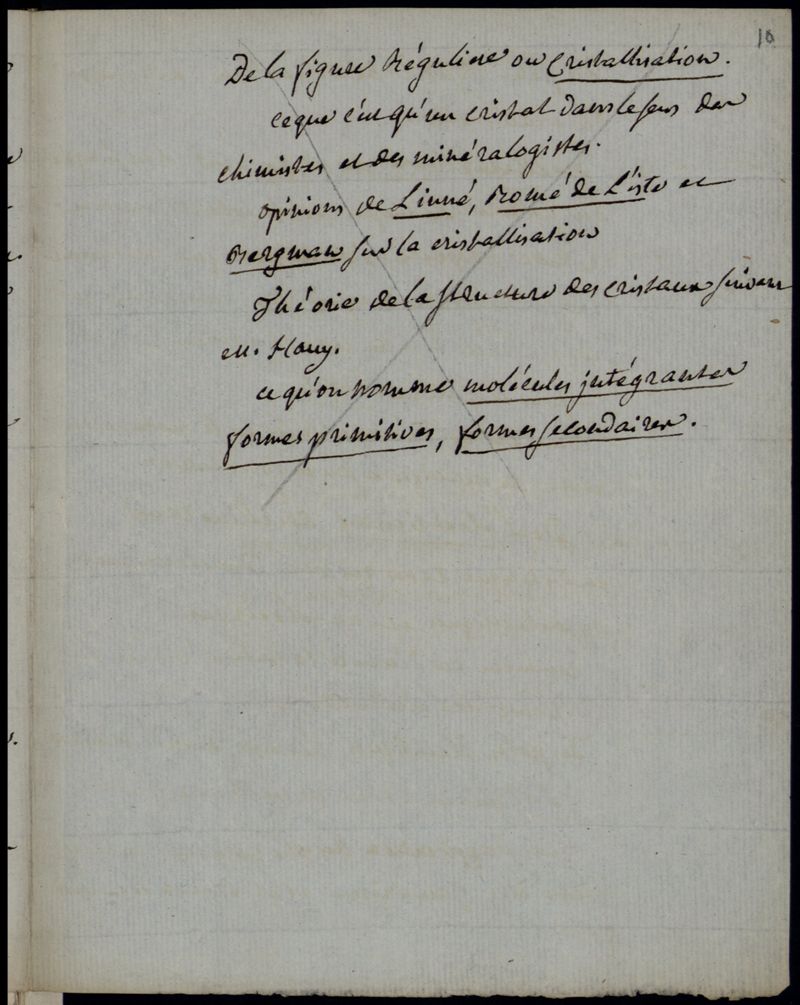 10
De la figure Régulière ou Cristallisation.
ce que c'est qu'un cristal dans le sens des
chimistes et des minéralogistes.
opinions de Linné, Romé de L'isle et
Bergman sur la cristallisation
Théorie de la structure des cristaux suivant
M. Hauy.
ce qu'on nomme molécules intégrantes
formes primitives, formes secondaires.